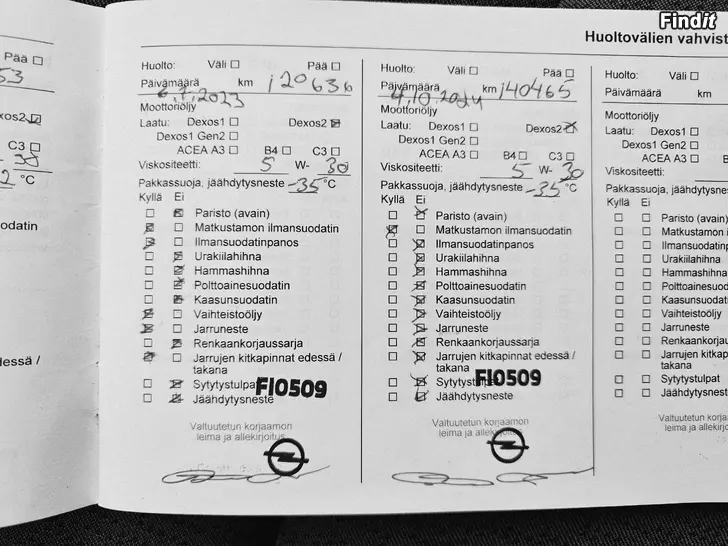 Findit
Huoltovälien vahvist
Pää ☐
53
exos2
C3 ☐
30
°C
suodatin
edessä /
Huolto: Väli ☐ Pää ☐
Päivämäärä km 120636
6.7.2023
Moottoriöljy
Laatu: Dexos1 ☐ Dexos2 ☒
Dexos1 Gen2 ☐
ACEA A3 ☐ B4 ☐ C3 ☐
Viskositeetti: 5 W- 30
Pakkassuoja, jäähdytysneste -35 °C
Kyllä Ei
☐ ☒ Paristo (avain)
☒ ☐ Matkustamon ilmansuodatin
☒ ☐ Ilmansuodatinpanos
☐ ☒ Urakiilahihna
☐ ☒ Hammashihna
☐ ☒ Polttoainesuodatin
☐ ☒ Kaasunsuodatin
☒ ☐ Vaihteistoöljy
☒ ☐ Jarruneste
☐ ☒ Renkaankorjaussarja
☒ ☐ Jarrujen kitkapinnat edessä /
takana
☐ ☒ Sytytystulpat
☐ ☒ Jäähdytysneste
FI0509
Valtuutetun korjaamon
leima ja allekirjoitus
Huolto: Väli ☐ Pää ☐
Päivämäärä km 140465
4.10.2024
Moottoriöljy
Laatu: Dexos1 ☐ Dexos2 ☒
Dexos1 Gen2 ☐
ACEA A3 ☐ B4 ☐ C3 ☐
Viskositeetti: 5 W- 30
Pakkassuoja, jäähdytysneste -35 °C
Kyllä Ei
☐ ☒ Paristo (avain)
☒ ☐ Matkustamon ilmansuodatin
☐ ☒ Ilmansuodatinpanos
☐ ☒ Urakiilahihna
☐ ☒ Hammashihna
☐ ☒ Polttoainesuodatin
☐ ☒ Kaasunsuodatin
☐ ☒ Vaihteistoöljy
☐ ☒ Jarruneste
☐ ☒ Renkaankorjaussarja
☐ ☒ Jarrujen kitkapinnat edessä /
takana
☐ ☒ Sytytystulpat
☐ ☒ Jäähdytysneste
FI0509
Valtuutetun korjaamon
leima ja allekirjoitus
Huolto: Väli ☐
Päivämäärä km
Moottoriöljy
Laatu: Dexos1 ☐
Dexos1 Gen2 ☐
ACEA A3 ☐
Viskositeetti:
Pakkassuoja, jäähdytysneste
Kyllä Ei
☐ ☐ Paristo (avain)
☐ ☐ Matkustamon ilmansu
☐ ☐ Ilmansuodatinpanos
☐ ☐ Urakiilahihna
☐ ☐ Hammashihna
☐ ☐ Polttoainesuodatin
☐ ☐ Kaasunsuodatin
☐ ☐ Vaihteistoöljy
☐ ☐ Jarruneste
☐ ☐ Renkaankorjaussarja
☐ ☐ Jarrujen kitkapinnat
takana
☐ ☐ Sytytystulpat
☐ ☐ Jäähdytysneste
Valtuutetun korja
leima ja allekirjo